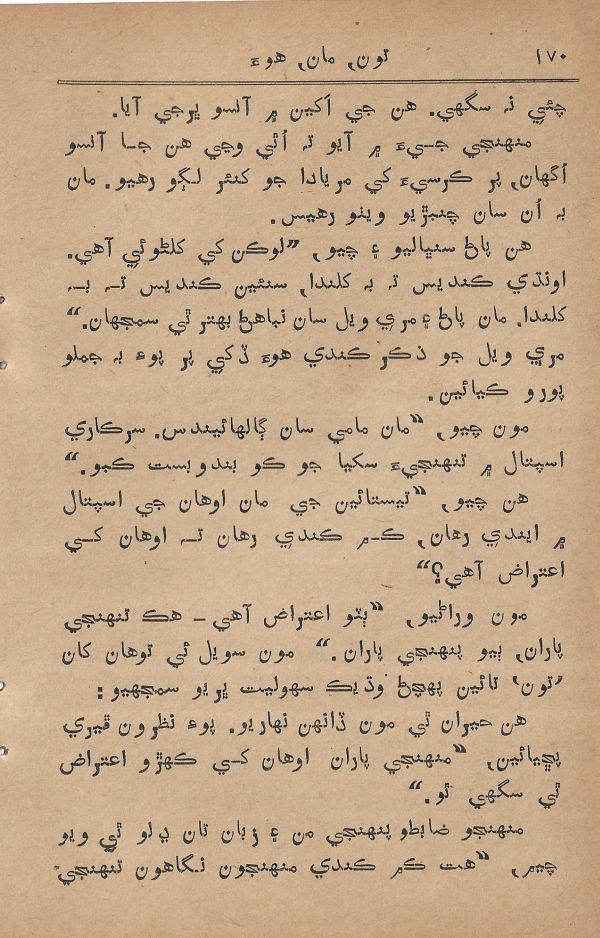 ١٧٠ تون، مان، هوءَ
چئي نہ سگهي. هن جي اَکين ۾ آنسو ڀرجي آيا.
منهنجي جيءَ ۾ آيو تہ اُٿي وڃي هن جا آنسو
اُگهان، پر ڪرسيءَ کي مريادا جو ڪنٽر لڳو رهيو. مان
بہ اُن سان چنبڙيو ويٺو رهيس.
هن پاڻ سنڀاليو ۽ چيو، ”لوڪن کي کلڻوئي آهي.
اونڌي ڪنديس تہ بہ کلندا، سنئين ڪنديس تہ بہ
کلندا. مان پاڻ ۽ مري ويل سان نباهڻ بهتر ٿي سمجهان.“
مري ويل جو ذڪر ڪندي هوءَ ڏکي پر پوءِ بہ جملو
پورو ڪيائين.
مون چيو، “مان مامي سان ڳالهائيندس. سرڪاري
اسپتال ۾ تنهنجيءَ سکيا جو ڪو بندوبست ڪبو.“
هن چيو، “تيستائين جي مان اوهان جي اسپتال
۾ ايندي رهان، ڪم ڪندي رهان تہ اوهان کي
اعتراض آهي؟“
مون وراڻيو، “ٻٽو اعتراض آهي - هڪ تنهنجي
پاران، ٻيو پنهنجي پاران.“ مون سويل ئي توهان کان
’تون‘ تائين پهچڻ وڌيڪ سهوليت ڀريو سمجهيو:
هن حيران ٿي مون ڏانهن نهاريو. پوءِ نظرون ڦيري
پڇيائين، “منهنجي پاران اوهان کي ڪهڙو اعتراض
ٿي سگهي ٿو.“
منهنجو ضابطو پنهنجي من ۽ زبان تان ڍلو ٿي ويو
چيم، “هت ڪم ڪندي منهنجون نگاهون تنهنجي